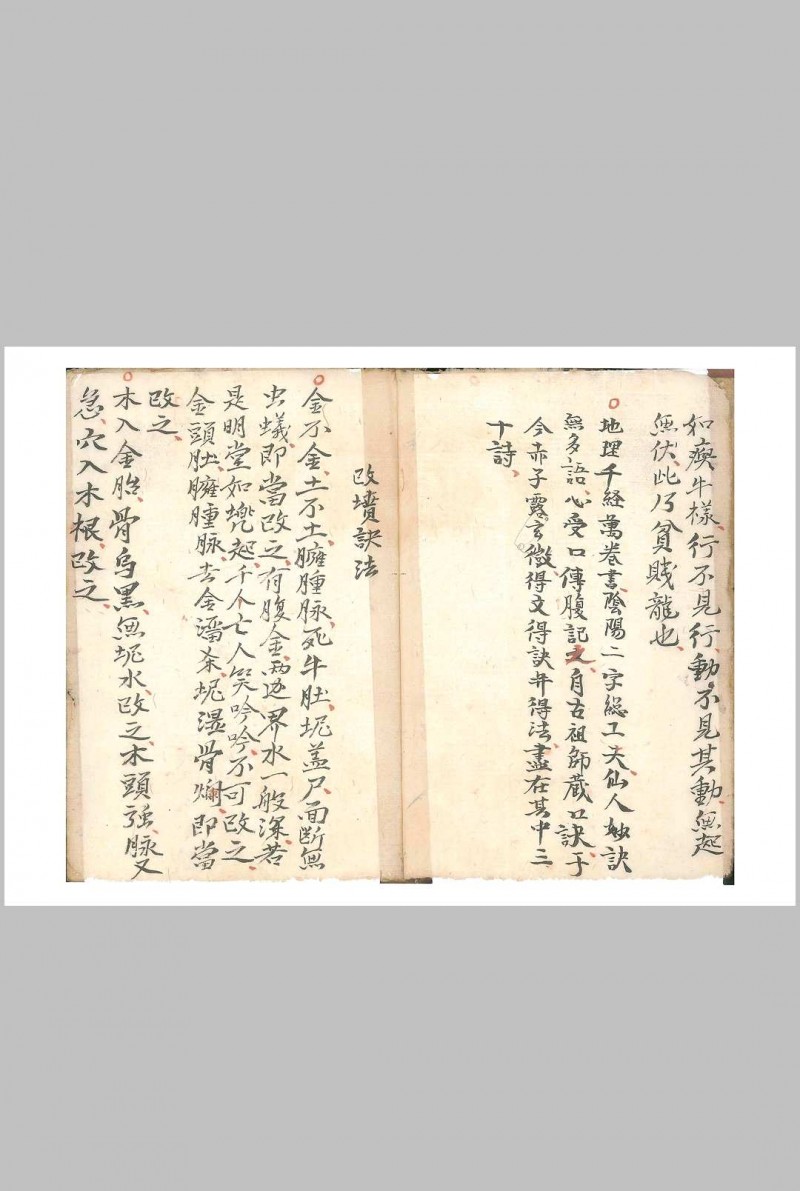 如瘓牛樣、行不見行、動不見其動、無起
無伏此乃貧賤龍也、
地理千経萬卷書陰陽二字総工夫仙人妙訣
無多語、心受口傳腹記之、自古祖師蔵口訣、于
今赤子露玄微得文得訣并得法、盡在其中三
十詩、
改墳訣法
金不金、土不土、臃腫脉、死牛肚、坭盖尸面断無
虫蟻、即當改之、有腹金、兩边界水一般深、若
是明堂如㙈起、千个亡人笑吟吟、不可改之、
金頭肚、臃腫脉、去金潘杀、坭湿骨爛、即當
改之、
木入金胎、骨烏黑、無坭水、改之、木頭强、脉又
急、穴入木根、改之、